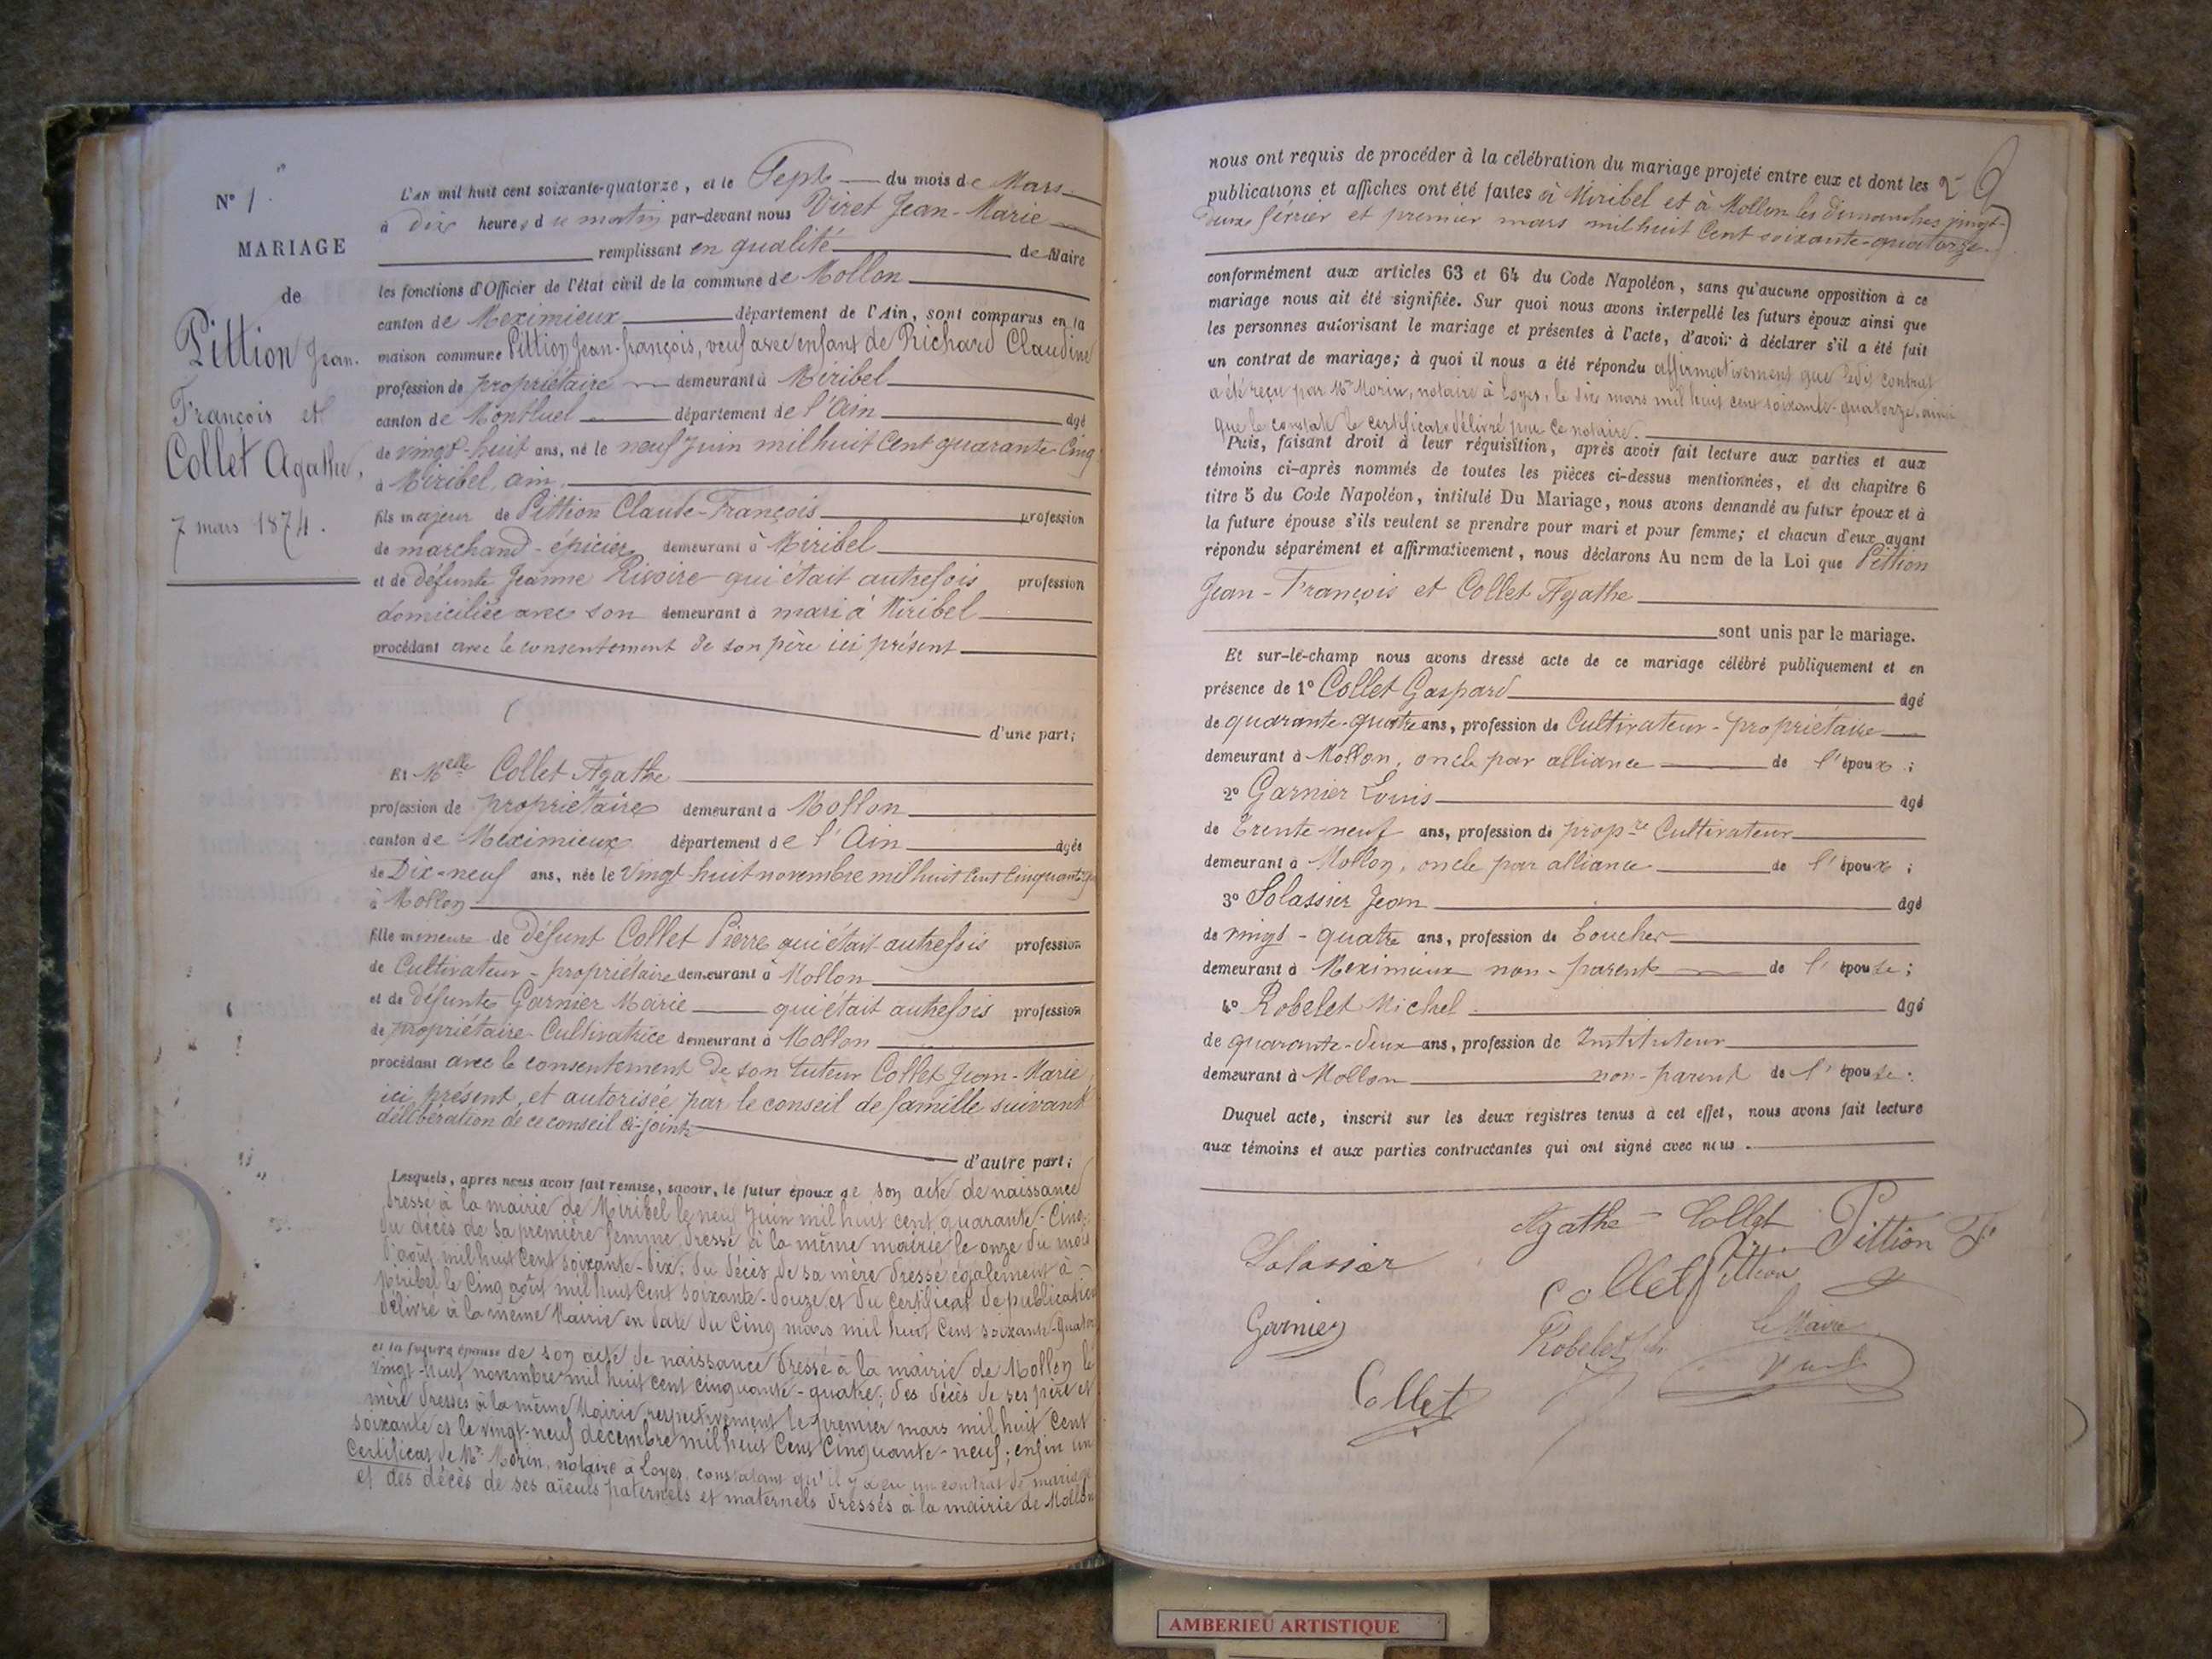 N° 1
MARIAGE
de
Pittion Jean-
François et
Collet Agathe,
7 mars 1874.
L'AN mil huit cent soixante-quatorze, et le Sept du mois de Mars
à dix heures du matin par-devant nous Viret Jean-Marie
remplissant en qualité de Maire
les fonctions d'Officier de l'état civil de la commune de Mollon
canton de Meximieux département de l'Ain, sont comparus en la
maison commune Pittion Jean-François, veuf avec enfant de Richard Claudine
profession de propriétaire demeurant à Miribel
canton de Montluel département de l'Ain âgé
de vingt-huit ans, né le neuf Juin mil huit Cent quarante-Cinq
à Miribel, ain,
fils majeur de Pittion Claude-François profession
de marchand-épicier demeurant à Miribel
et de défunte Jeanne Rivoire qui était autrefois profession
domiciliée avec son demeurant à mari à Miribel
procédant avec le consentement de son père ici présent
d'une part;
Et Melle Collet Agathe
profession de propriétaire demeurant à Mollon
canton de Meximieux département de l'Ain âgée
de Dix-neuf ans, née le Vingt-huit novembre mil huit Cent Cinquante
à Mollon
fille mineure de défunt Collet Pierre qui était autrefois profession
de Cultivateur-propriétaire demeurant à Mollon
et de défunte Garnier Marie qui était autrefois profession
de propriétaire-Cultivatrice demeurant à Mollon
procédant avec le consentement de son tuteur Collet Jean-Marie
ici présent, et autorisée par le conseil de famille suivant
délibération de ce conseil ci-jointe
d'autre part;
Lesquels, après nous avoir fait remise, savoir, le futur époux de son acte de naissance
dressé à la mairie de Miribel le neuf Juin mil huit cent quarante-Cinq;
du décès de sa première femme dressé à la même mairie le onze du mois
d'août mil huit Cent soixante-dix; du décès de sa mère dressé également à
Miribel le Cinq août mil huit Cent soixante-douze et du Certificat de publication
délivré à la même Mairie en date du Cinq mars mil huit Cent soixante-Quator
et la future épouse de son acte de naissance dressé à la mairie de Mollon le
vingt-huit novembre mil huit cent cinquante-quatre; des décès de ses père et
mère dressés à la même Mairie respectivement le premier mars mil huit Cent
soixante et le vingt-neuf décembre mil huit Cent Cinquante-neuf; enfin un
Certificat de Me Morin, notaire à Loyes, constatant qu'il y a eu un contrat de mariage
et des décès de ses aïeuls paternels et maternels dressés à la mairie de Mollon
nous ont requis de procéder à la célébration du mariage projeté entre eux et dont les 2
publications et affiches ont été faites à Miribel et à Mollon les dimanches vingt-
deux février et premier mars mil huit Cent soixante-quatorze
conformément aux articles 63 et 64 du Code Napoléon, sans qu'aucune opposition à ce
mariage nous ait été signifiée. Sur quoi nous avons interpellé les futurs époux ainsi que
les personnes autorisant le mariage et présentes à l'acte, d'avoir à déclarer s'il a été fait
un contrat de mariage; à quoi il nous a été répondu affirmativement que ledit contrat
a été reçu par Me Morin, notaire à Loyes, le six mars mil huit cent soixante-quatorze, ainsi
que le constate le certificat délivré par ce notaire.
Puis, faisant droit à leur réquisition, après avoir fait lecture aux parties et aux
témoins ci-après nommés de toutes les pièces ci-dessus mentionnées, et du chapitre 6
titre 5 du Code Napoléon, intitulé Du Mariage, nous avons demandé au futur époux et à
la future épouse s'ils veulent se prendre pour mari et pour femme; et chacun d'eux ayant
répondu séparément et affirmativement, nous déclarons Au nom de la Loi que Pittion
Jean-François et Collet Agathe
sont unis par le mariage.
Et sur-le-champ nous avons dressé acte de ce mariage célébré publiquement et en
présence de 1° Collet Gaspard âgé
de quarante-quatre ans, profession de Cultivateur-propriétaire
demeurant à Mollon, oncle par alliance de l'époux;
2° Garnier Louis âgé
de trente-neuf ans, profession de propre Cultivateur
demeurant à Mollon, oncle par alliance de l'époux;
3° Solassier Jean âgé
de vingt-quatre ans, profession de boucher
demeurant à Meximieux non-parent de l'épouse;
4° Robelet Michel âgé
de quarante-deux ans, profession de Instituteur
demeurant à Mollon non-parent de l'épouse.
Duquel acte, inscrit sur les deux registres tenus à cet effet, nous avons fait lecture
aux témoins et aux parties contractantes qui ont signé avec nous.
Agathe Collet Pittion F
Solassier
Collet Pittion
Garnier
Robelet
Le Maire
Viret
Collet
AMBERIEU ARTISTIQUE